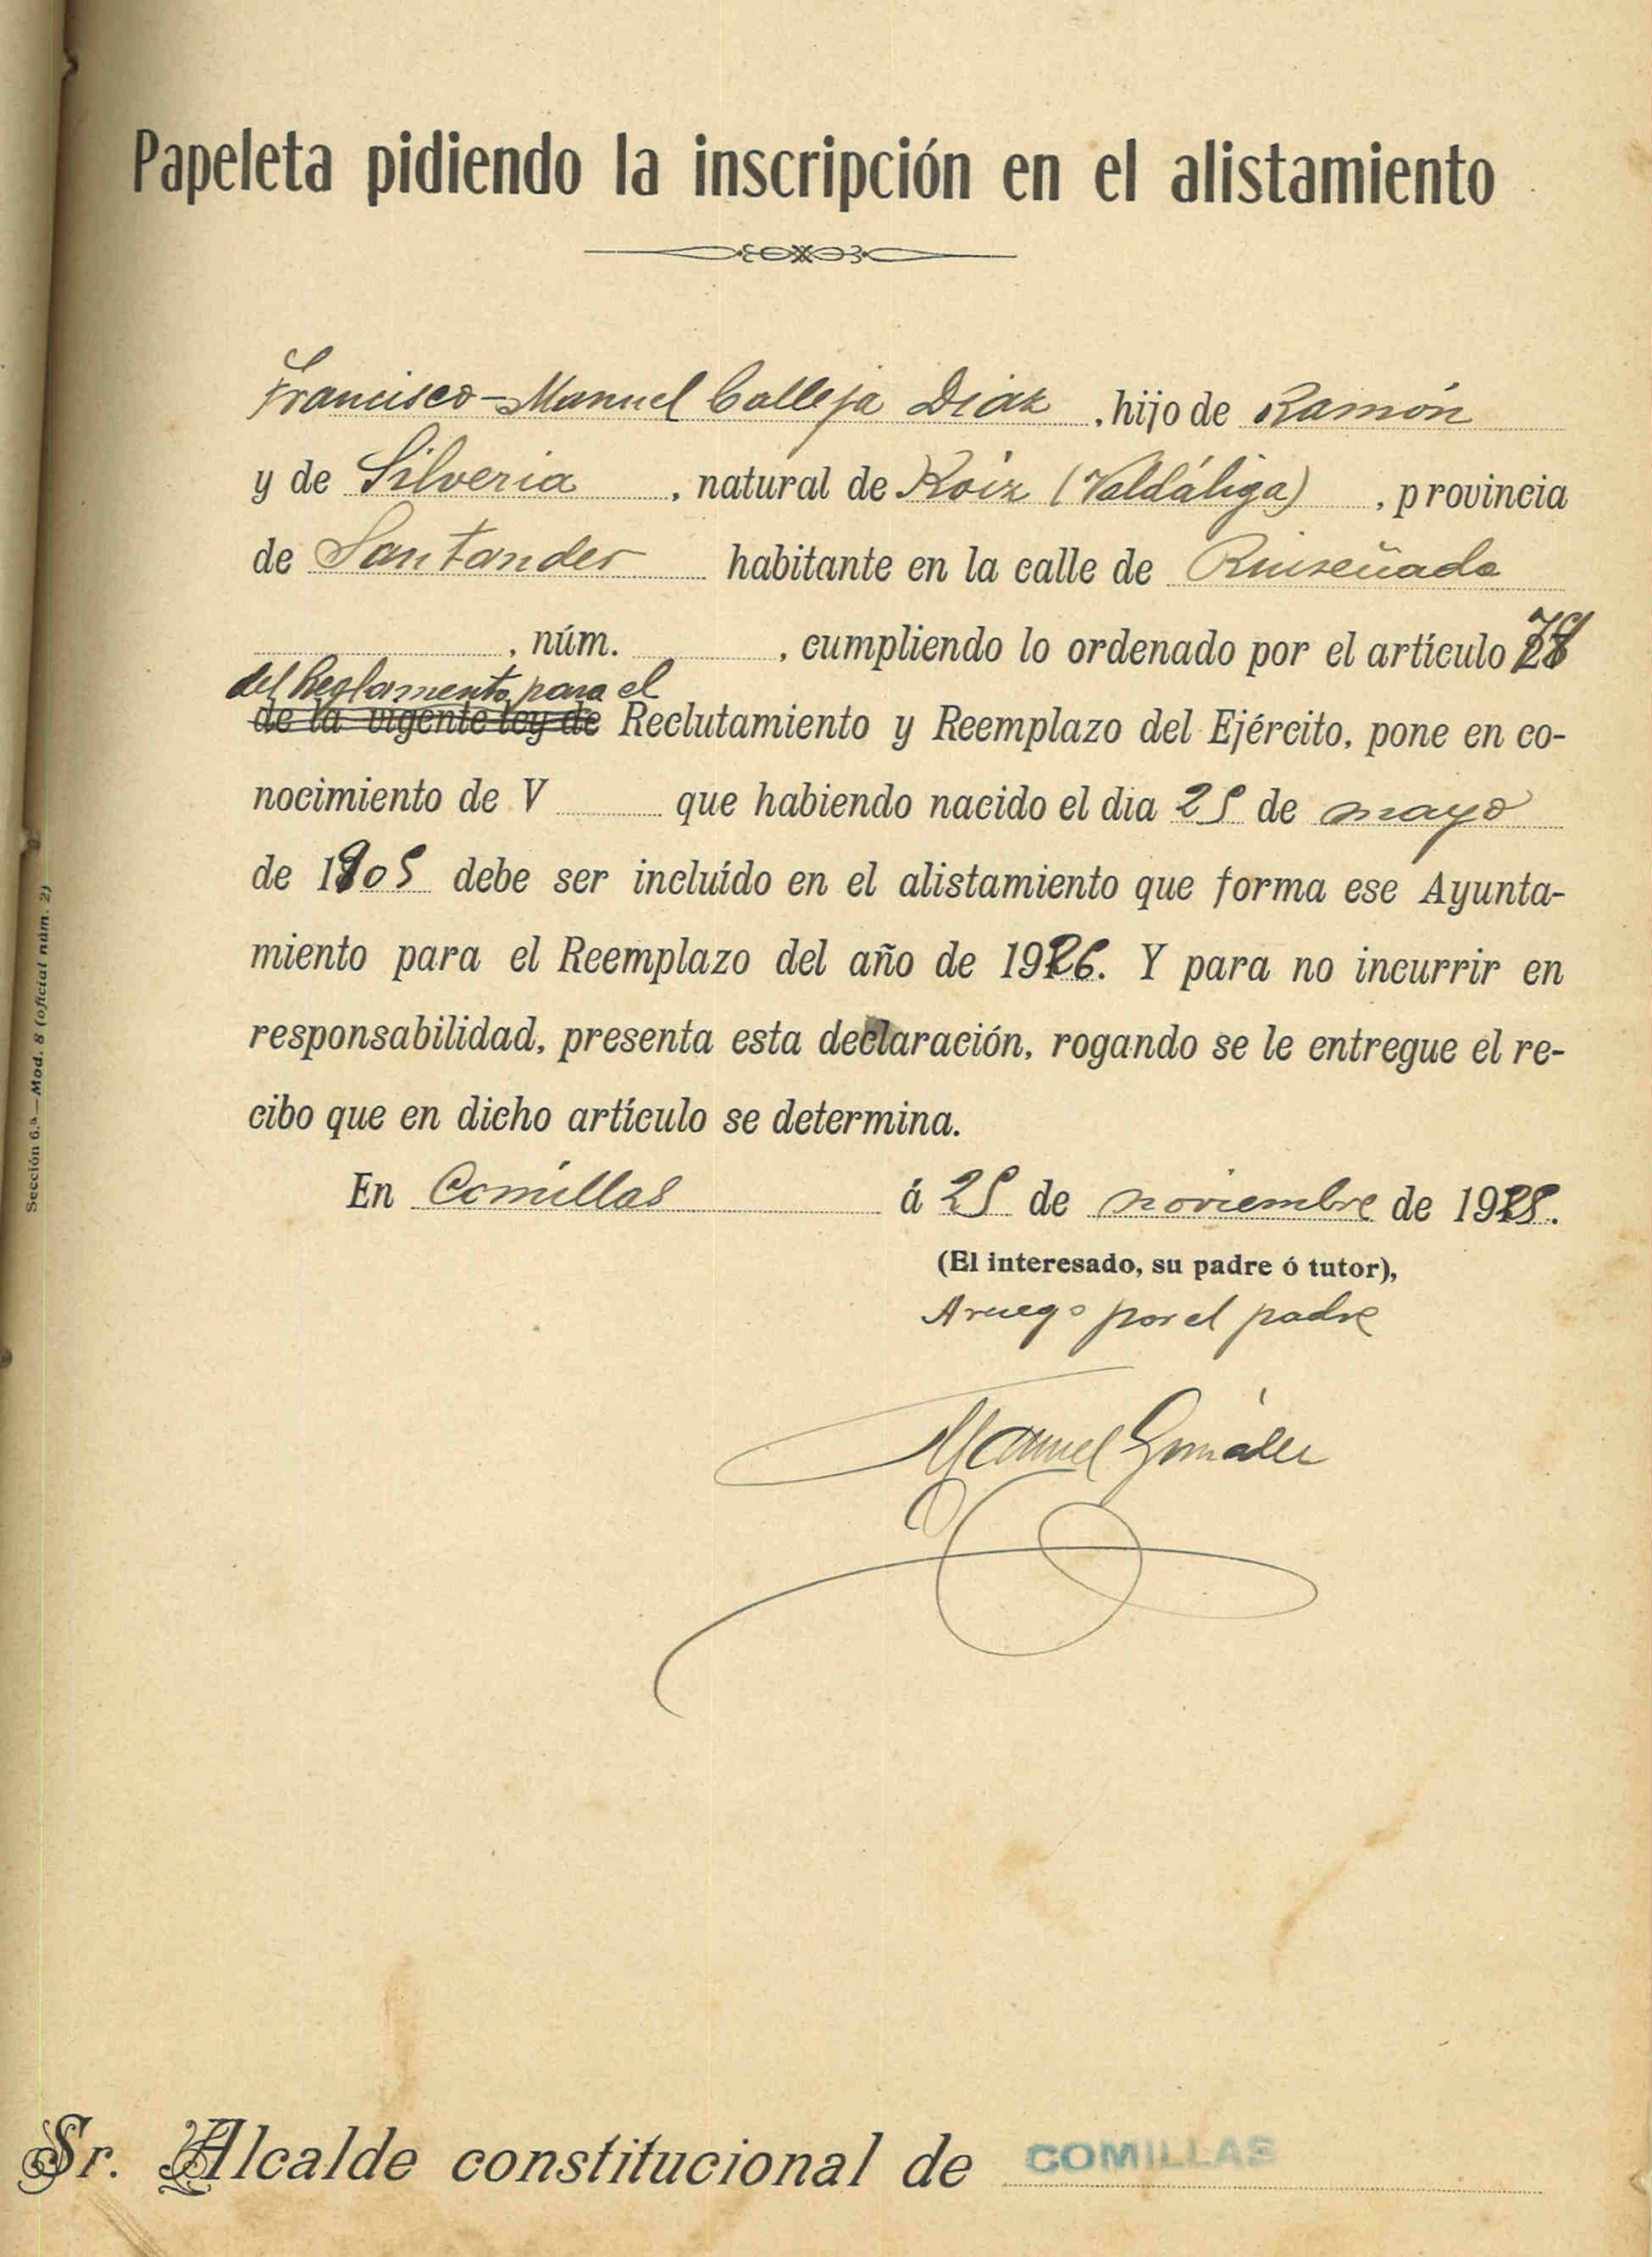 Papeleta pidiendo la inscripción en el alistamiento
Francisco-Manuel Calleja Diaz, hijo de Ramón
y de Silveria, natural de Roiz (Valdáliga), provincia
de Santander habitante en la calle de Ruiseñada
, núm. , cumpliendo lo ordenado por el artículo
del Reglamento para el
de la vigente ley de Reclutamiento y Reemplazo del Ejército, pone en co-
nocimiento de V que habiendo nacido el dia 25 de mayo
de 1905 debe ser incluído en el alistamiento que forma ese Ayunta-
miento para el Reemplazo del año de 1926. Y para no incurrir en
responsabilidad, presenta esta declaración, rogando se le entregue el re-
cibo que en dicho artículo se determina.
En Comillas á 25 de noviembre de 1925.
(El interesado, su padre ó tutor),
A ruego por el padre
Manuel González
Sr. Alcalde constitucional de COMILLAS
Sección 6.ª—Mod. 8 (oficial núm. 2)